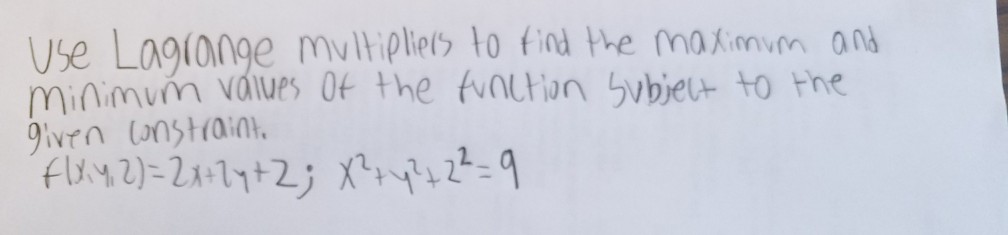 Use Lagrange multipliers to find the maximum and
minimum values of the function subject to the
given constraint.
f(x,y,z)=2x+2y+z; x²+y²+z²=9